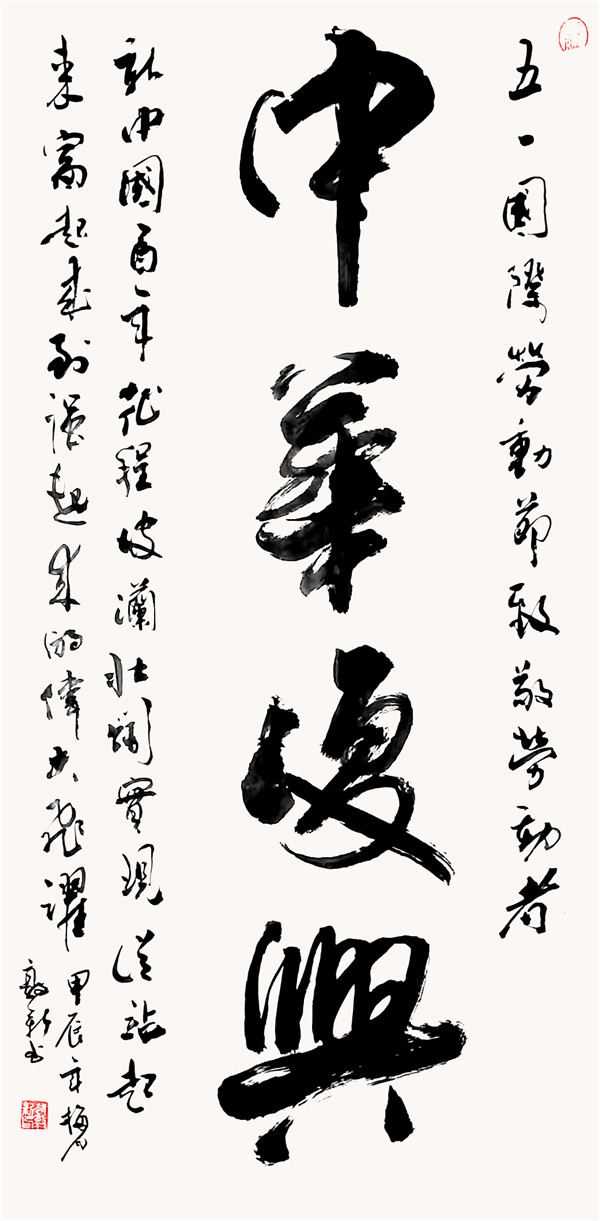 五一國際勞動節致敬勞動者
中華復興
新中國百年征程波瀾壯闊實現從站起
來富起來到强起來的偉大飛躍
甲辰年梅月
敦新书